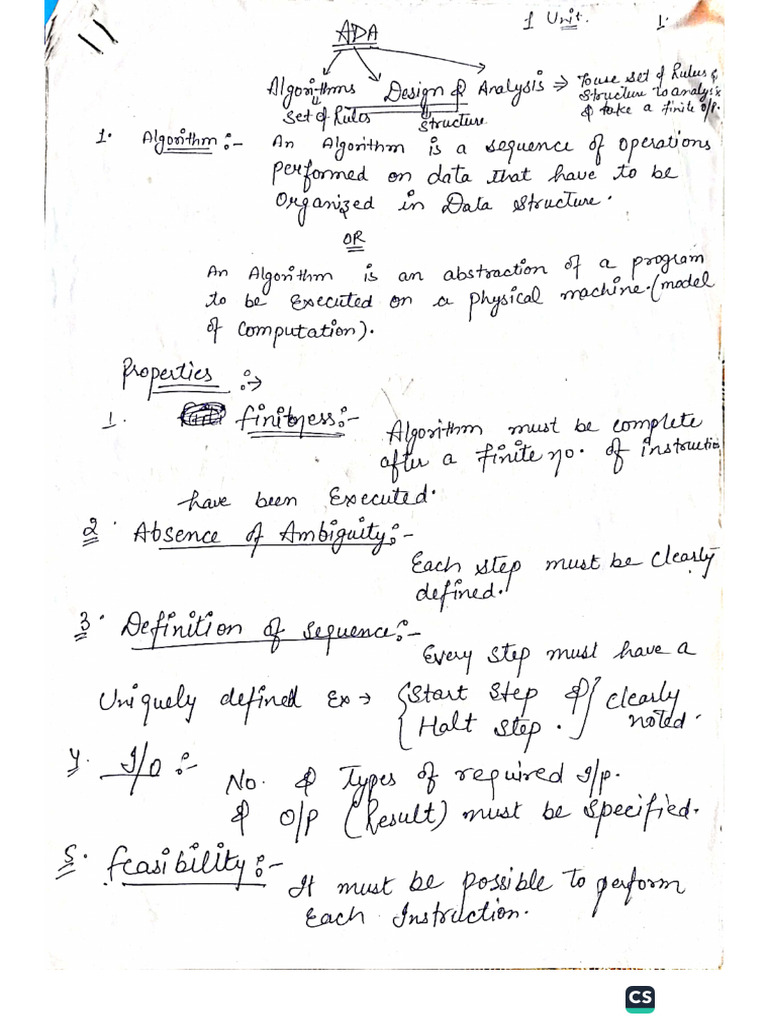 1 Unit. 1.
11
ADA
Algorithms Design & Analysis → To use set of Rules &
Set of Rules Structure Structure to analysis
& take a finite o/p.
1. Algorithm :- An Algorithm is a sequence of operations
performed on data that have to be
Organized in Data structure.
OR
An Algorithm is an abstraction of a program
to be Executed on a physical machine. (model
of Computation).
Properties :→
1. finitness:- Algorithm must be complete
after a finite no. of instruction
have been Executed.
2. Absence of Ambiguity:-
Each step must be Clearly
defined.
3. Definition of sequence:-
Every step must have a
Uniquely defined Ex → {Start Step &} Clearly
{Halt step.} noted.
4. I/O :-
No. & Types of required I/p.
& O/P (Result) must be specified.
5. feasibility:-
It must be possible to perform
Each Instruction.
CS